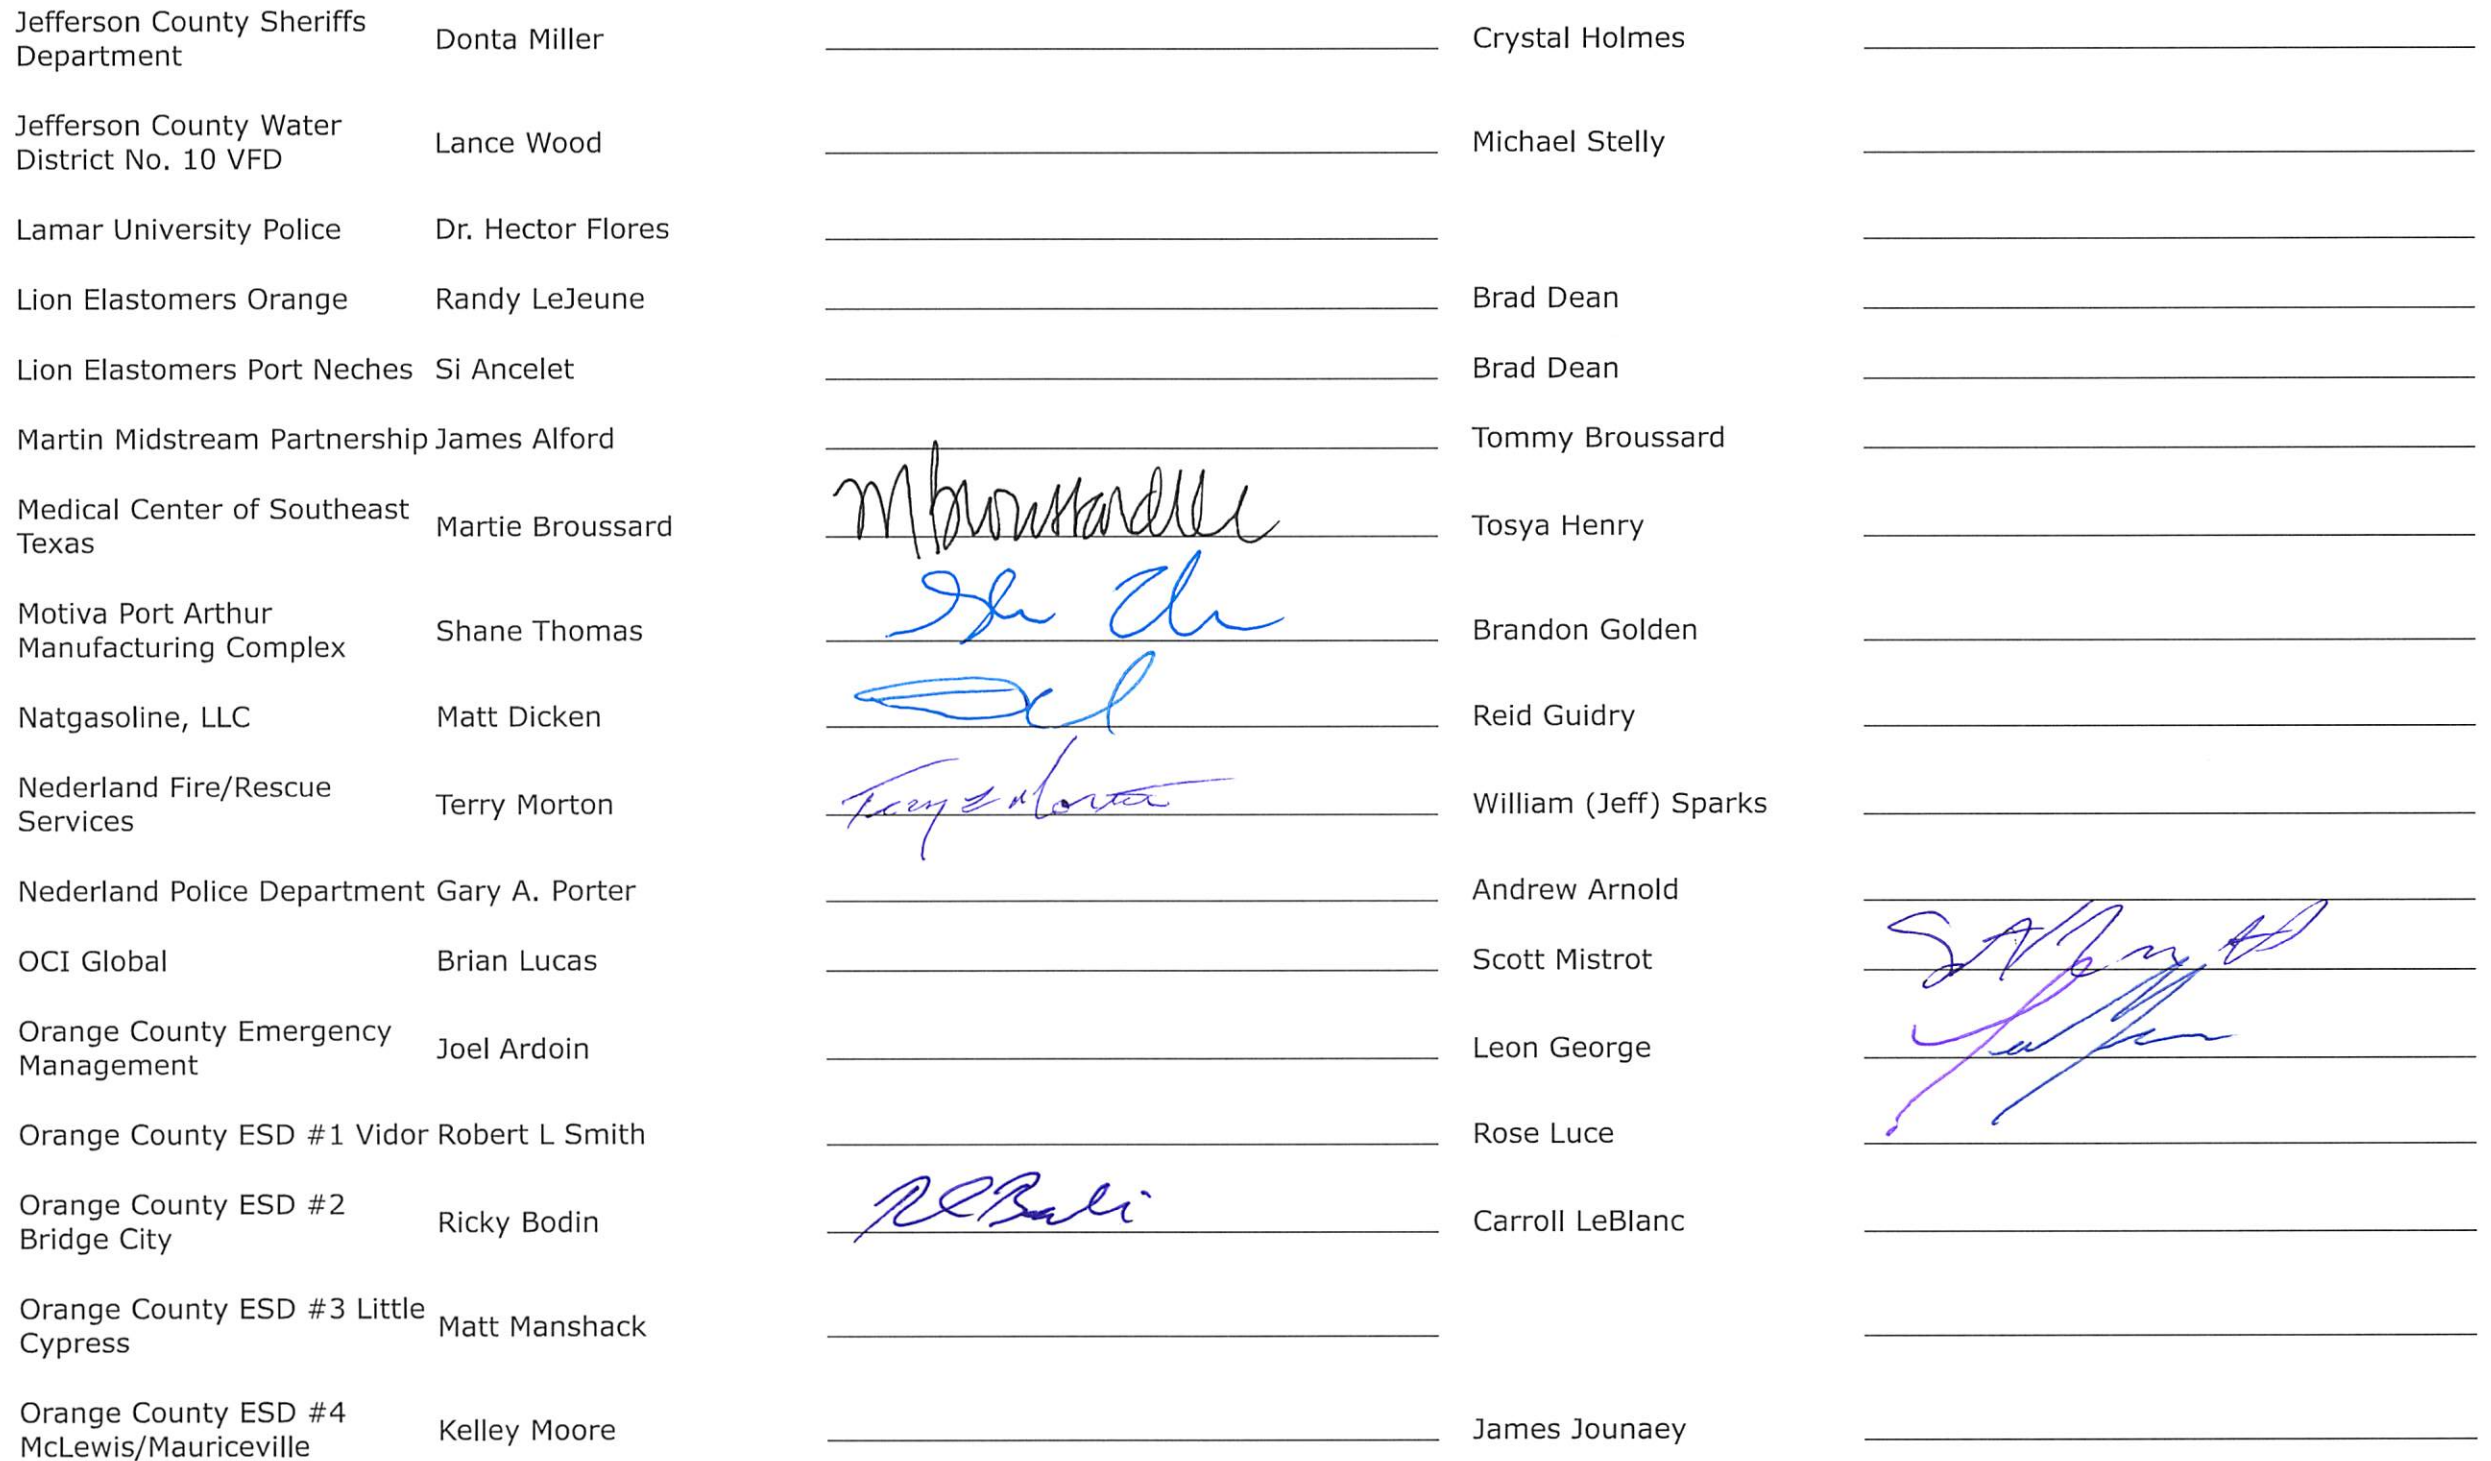 Jefferson County Sheriffs
Department Donta Miller Crystal Holmes
Jefferson County Water
District No. 10 VFD Lance Wood Michael Stelly
Lamar University Police Dr. Hector Flores
Lion Elastomers Orange Randy LeJeune Brad Dean
Lion Elastomers Port Neches Si Ancelet Brad Dean
Martin Midstream Partnership James Alford Tommy Broussard
Medical Center of Southeast
Texas Martie Broussard Tosya Henry
Motiva Port Arthur
Manufacturing Complex Shane Thomas Brandon Golden
Natgasoline, LLC Matt Dicken Reid Guidry
Nederland Fire/Rescue
Services Terry Morton Terry L Morton William (Jeff) Sparks
Nederland Police Department Gary A. Porter Andrew Arnold
OCI Global Brian Lucas Scott Mistrot
Orange County Emergency
Management Joel Ardoin Leon George
Orange County ESD #1 Vidor Robert L Smith Rose Luce
Orange County ESD #2
Bridge City Ricky Bodin Carroll LeBlanc
Orange County ESD #3 Little
Cypress Matt Manshack
Orange County ESD #4
McLewis/Mauriceville Kelley Moore James Jounaey